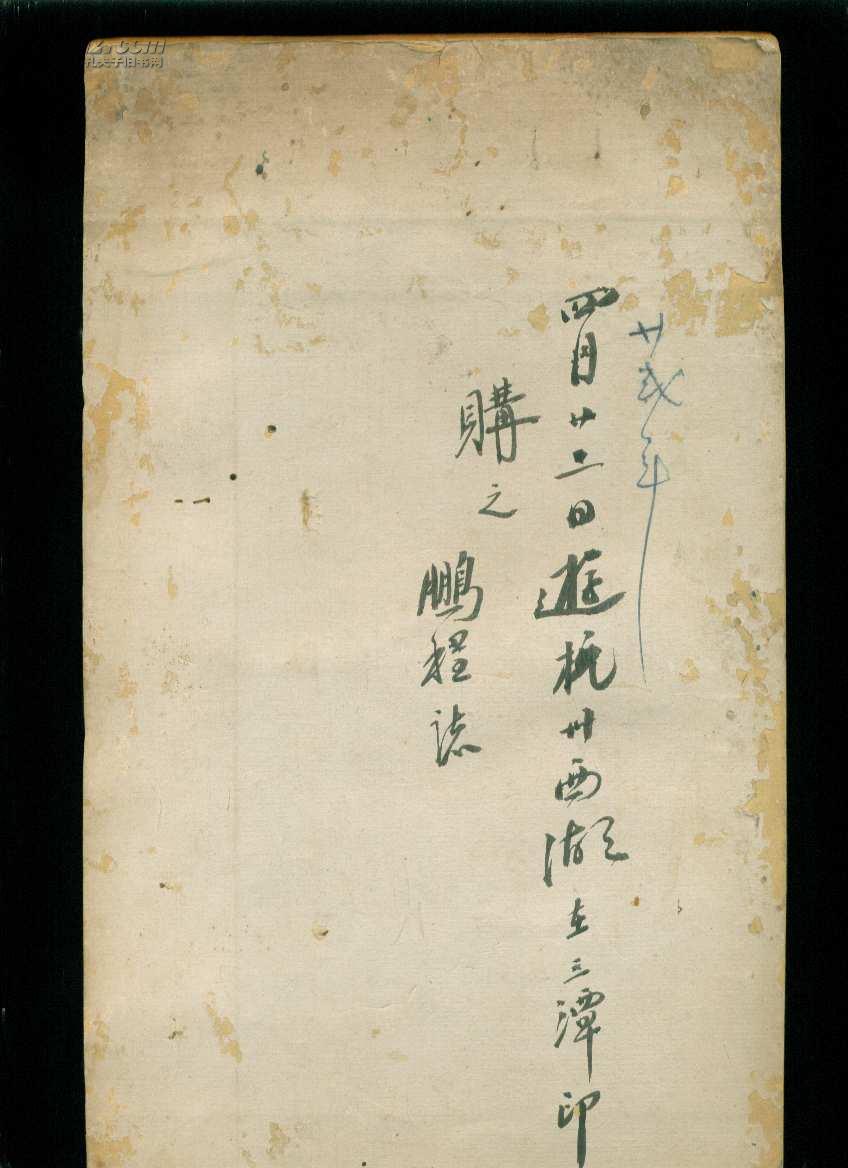 廿弍年
四月廿二日遊杭州西湖在三潭印
購之
鵬程誌
孔夫子旧书网